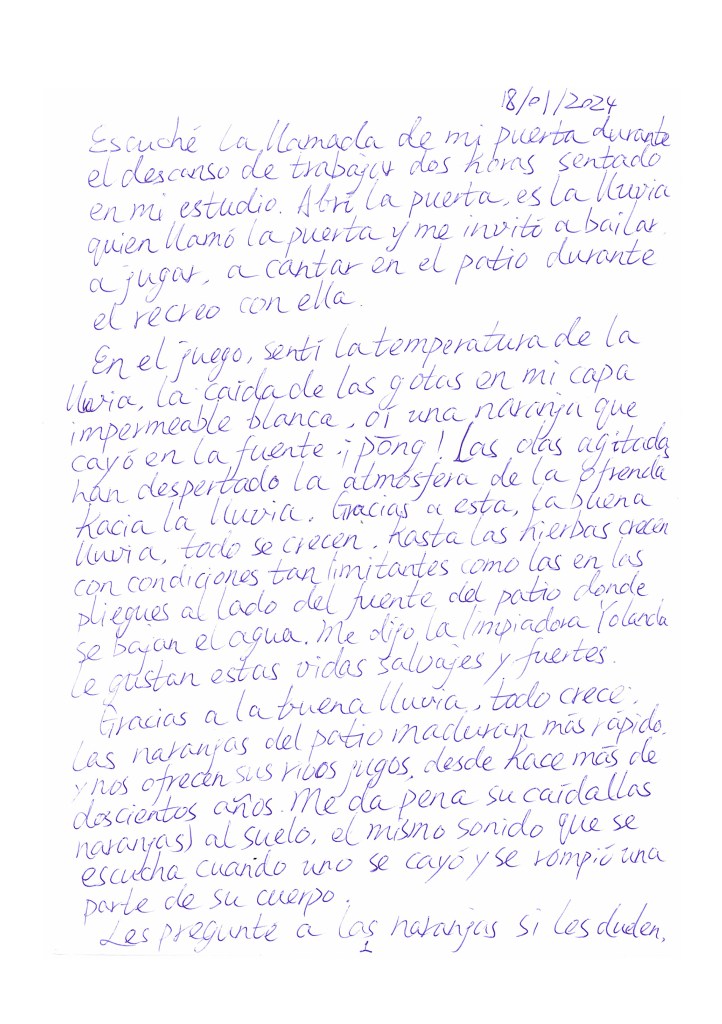 18/01/2024
Escuché la llamada de mi puerta durante
el descanso de trabajar dos horas sentado
en mi estudio. Abrí la puerta, es la lluvia
quien llamó la puerta y me invitó a bailar.
a jugar, a cantar en el patio durante
el recreo con ella.
En el juego, sentí la temperatura de la
lluvia, la caída de las gotas en mi capa
impermeable blanca, oí una naranja que
cayó en la fuente ¡pōng! Las olas agitadas
han despertado la atmósfera de la ofrenda
hacia la lluvia. Gracias a esta, la buena
lluvia, todo se crecen, hasta las hierbas crecen
con condiciones tan limitantes como las en las
pliegues al lado del fuente del patio donde
se bajan el agua. Me dijo la limpiadora Yolanda
le gustan estas vidas salvajes y fuertes.
Gracias a la buena lluvia, todo crece.
Las naranjas del patio maduran más rápido.
y nos ofrecen sus ricos jugos, desde hace más de
doscientos años. Me da pena su caída(las
naranjas) al suelo, el mismo sonido que se
escucha cuando uno se cayó y se rompió una
parte de su cuerpo.
Les pregunte a las naranjas si les duelen,
1